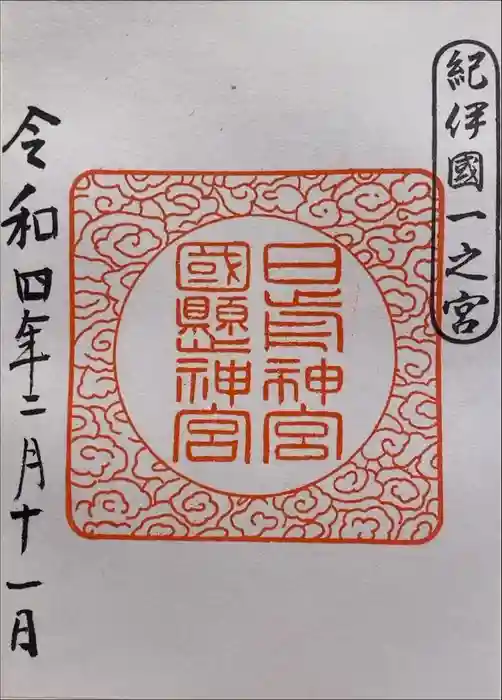 紀伊國一之宮
日前神宮
國懸神宮
令和四年二月十一日